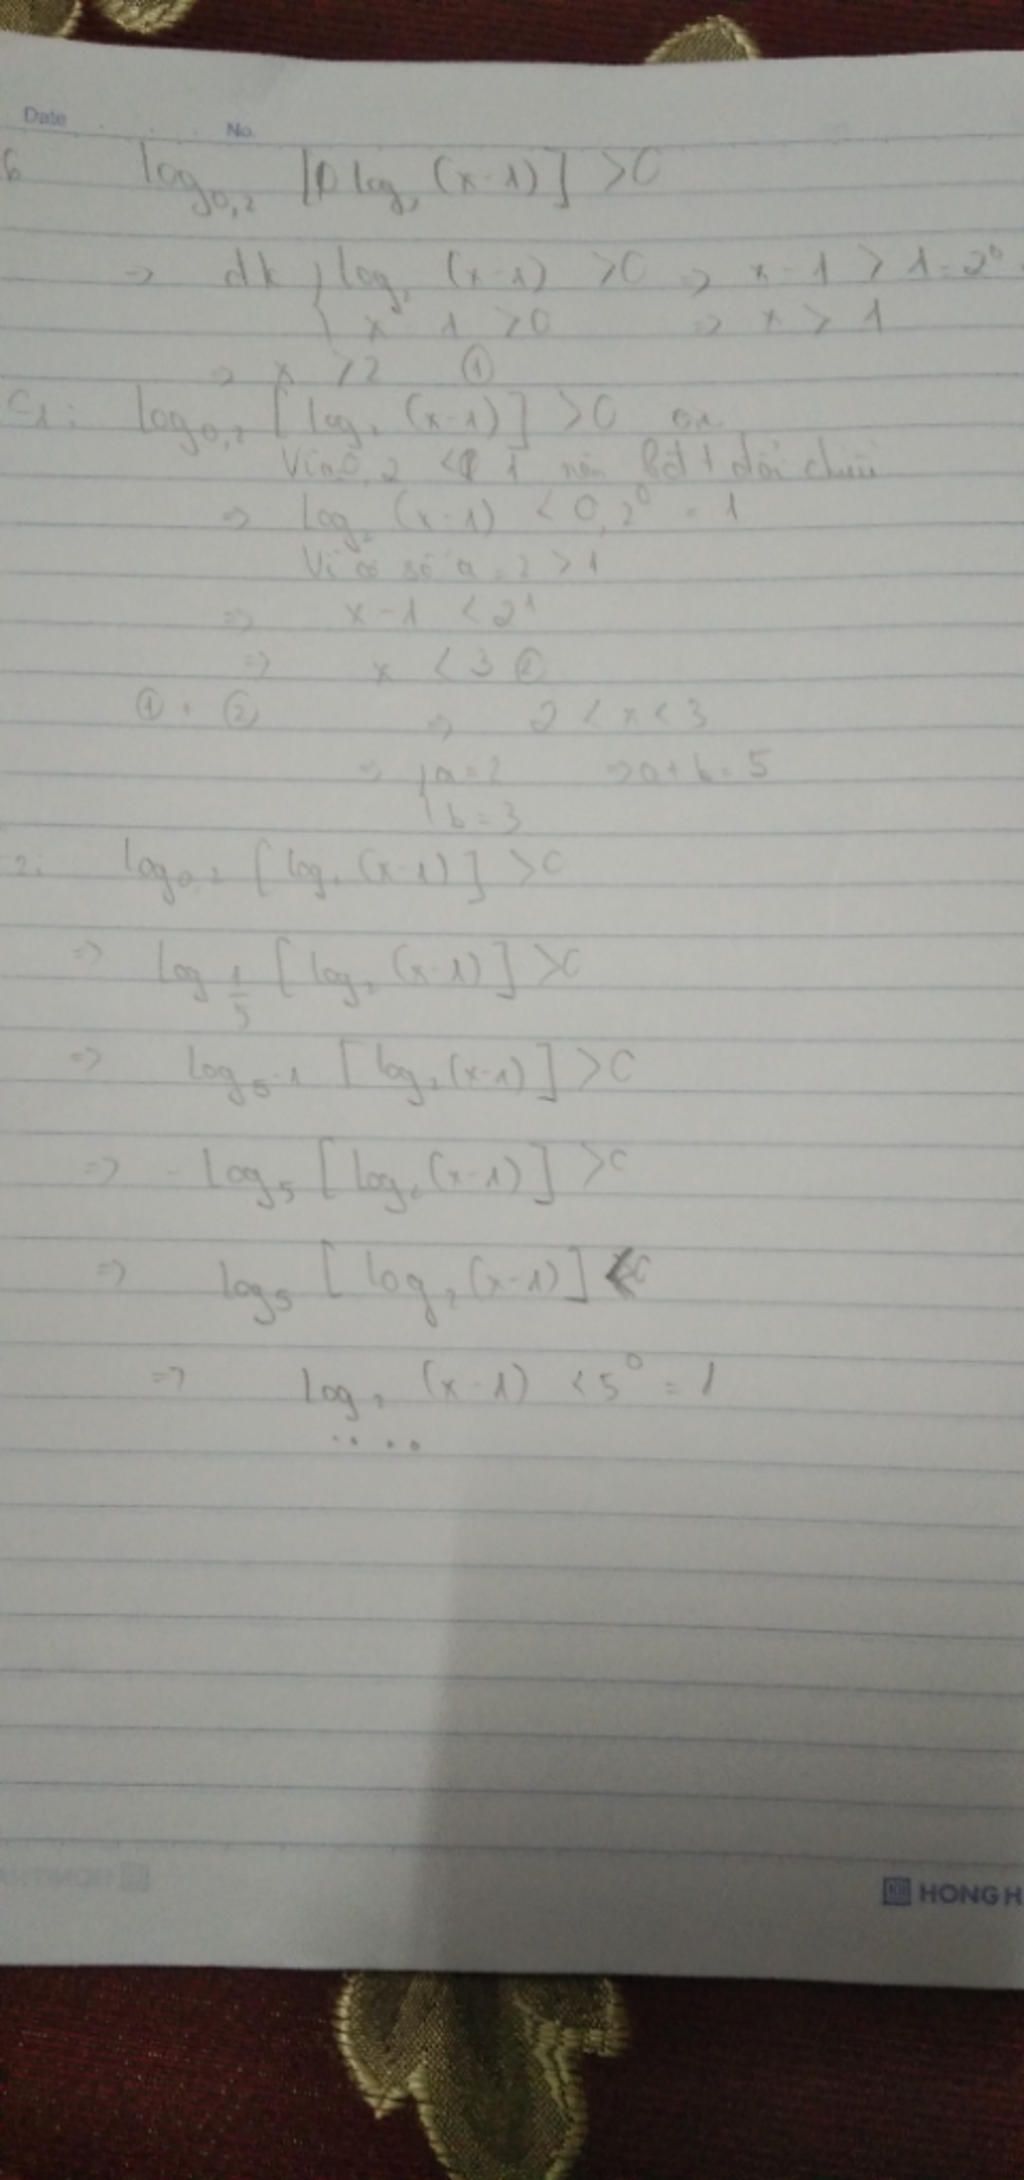 Date No.
6 log₀,₂ [log₂ (x-1)] >0
=> đk { log₂ (x-1) >0 => x-1 > 1=2⁰
x 1 >0 => x > 1
=> x >2 ①
C1: log₀,₂ [log₂ (x-1)] >0
Vì 0,2 < 1 nên Bđt đổi chiều
=> log₂ (x-1) < 0,2⁰ = 1
Vì cơ số a=2 >1
=> x-1 < 2¹
=> x < 3 ②
① + ② => 2 < x < 3
=> { a=2 => a+b=5
b=3
2: log₀,₂ [log₂ (x-1)] >0
=> log_1/5 [log₂ (x-1)] >0
=> log_5⁻¹ [log₂ (x-1)] >0
=> -log₅ [log₂ (x-1)] >0
=> log₅ [log₂ (x-1)] <0
=> log₂ (x-1) <5⁰ = 1
....
HONG H